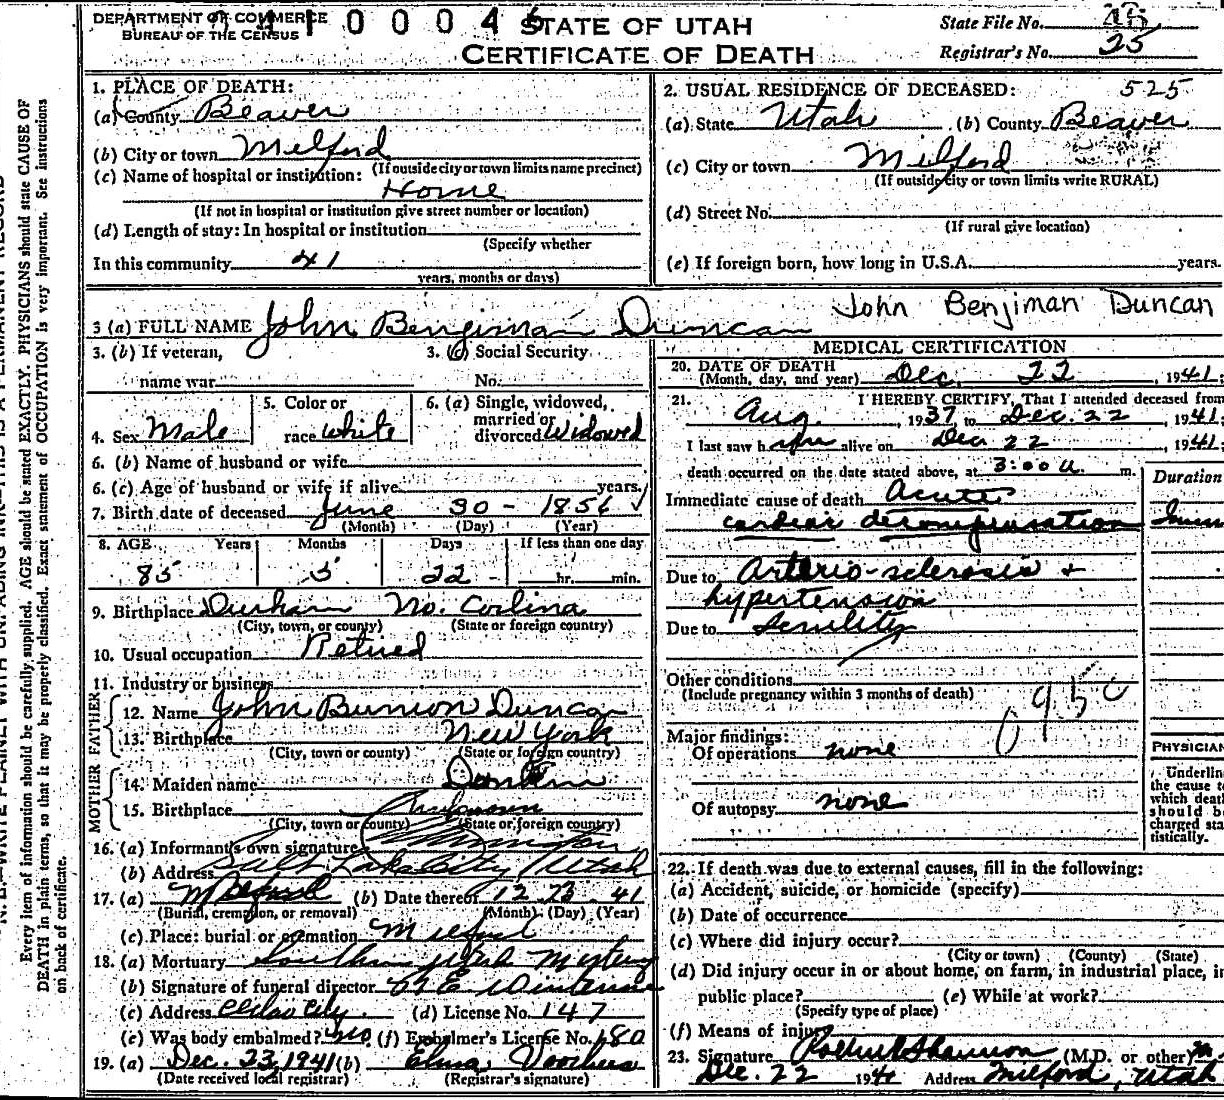 DEPARTMENT OF COMMERCE
BUREAU OF THE CENSUS
4 1 0 0 0 4 5
STATE OF UTAH
CERTIFICATE OF DEATH
State File No.
Registrar's No. 25
Every item of information should be carefully supplied. AGE should be stated EXACTLY. PHYSICIANS should state CAUSE OF
DEATH in plain terms, so that it may be properly classified. Exact statement of OCCUPATION is very important. See instructions
on back of certificate.
1. PLACE OF DEATH:
(a) County Beaver
(b) City or town Milford
(If outside city or town limits name precinct)
(c) Name of hospital or institution:
Home
(If not in hospital or institution give street number or location)
(d) Length of stay: In hospital or institution
(Specify whether
In this community 41
years, months or days)
2. USUAL RESIDENCE OF DECEASED: 525
(a) State Utah (b) County Beaver
(c) City or town Milford
(If outside city or town limits write RURAL)
(d) Street No.
(If rural give location)
(e) If foreign born, how long in U.S.A. years.
3 (a) FULL NAME John Benjiman Duncan John Benjiman Duncan
3. (b) If veteran,
name war
3. (c) Social Security
No.
4. Sex Male
5. Color or
race white
6. (a) Single, widowed,
married or
divorced Widowed
6. (b) Name of husband or wife
6. (c) Age of husband or wife if alive years.
7. Birth date of deceased June 30 - 1856
(Month) (Day) (Year)
8. AGE Years Months Days If less than one day
85 5 22 hr. min.
9. Birthplace Durham No. Corlina
(City, town, or county) (State or foreign country)
10. Usual occupation Retired
11. Industry or business
FATHER
12. Name John Bunion Duncan
13. Birthplace New York
(City, town or county) (State or foreign country)
MOTHER
14. Maiden name
15. Birthplace
(City, town or county) (State or foreign country)
16. (a) Informant's own signature
(b) Address Salt Lake City Utah
17. (a) (b) Date thereof 12 23 41
(Burial, cremation, or removal) (Month) (Day) (Year)
(c) Place: burial or cremation Milford
18. (a) Mortuary Southern Utah Mortuary
(b) Signature of funeral director
(c) Address Cedar City (d) License No. 147
(e) Was body embalmed? (f) Embalmer's License No. 180
19. (a) Dec. 23, 1941 (b) Elma Voorhees
(Date received local registrar) (Registrar's signature)
MEDICAL CERTIFICATION
20. DATE OF DEATH
(Month, day, and year) Dec. 22, 1941
21. I HEREBY CERTIFY, That I attended deceased from
Aug., 1937 to Dec. 22, 1941
I last saw h alive on Dec 22 1941
death occurred on the date stated above, at 3:00 a. m.
Duration
Immediate cause of death Acute
cardiac decompensation
Due to Arterio-sclerosis +
hypertension
Due to Senility
Other conditions
(Include pregnancy within 3 months of death)
Major findings:
Of operations none
Of autopsy none
PHYSICIAN
Underline
the cause to
which death
should be
charged sta
tistically.
22. If death was due to external causes, fill in the following:
(a) Accident, suicide, or homicide (specify)
(b) Date of occurrence
(c) Where did injury occur?
(City or town) (County) (State)
(d) Did injury occur in or about home, on farm, in industrial place, in
public place? (e) While at work?
(Specify type of place)
(f) Means of injury
23. Signature (M.D. or other)
Dec. 22 1941 Address Milford, Utah